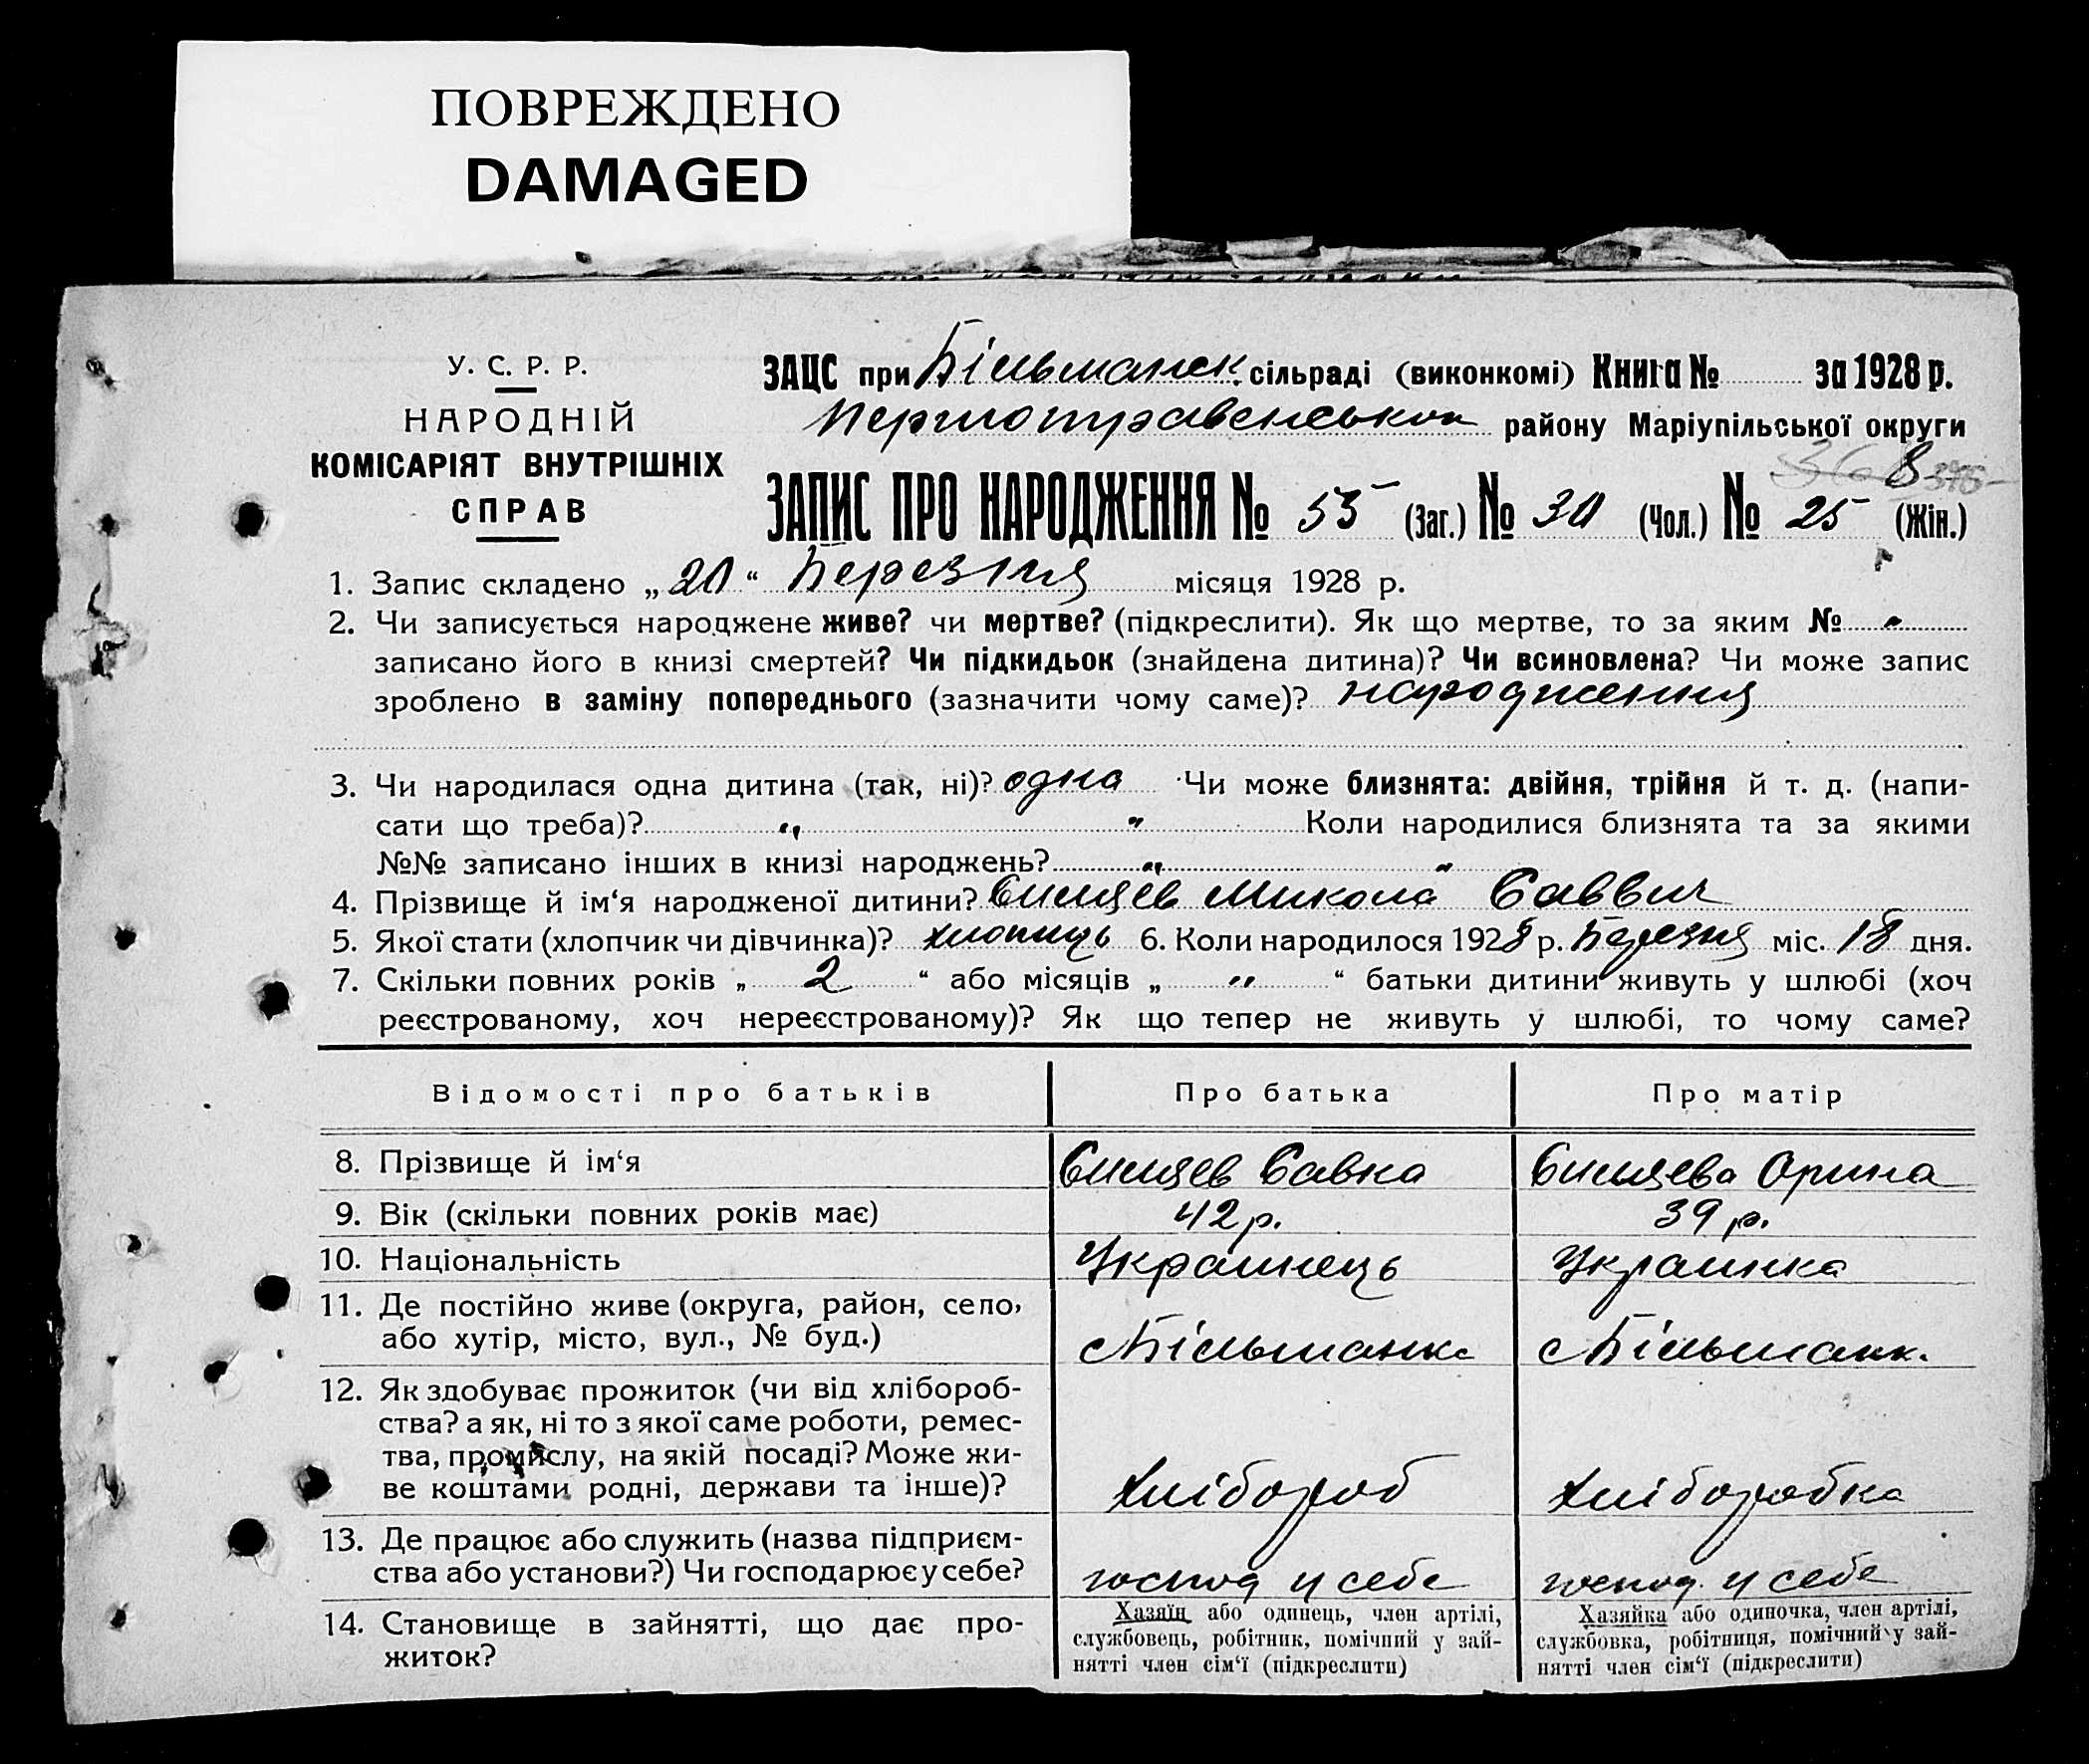 ПОВРЕЖДЕНО
DAMAGED
У. С. Р. Р.
НАРОДНІЙ
КОМІСАРІЯТ ВНУТРІШНІХ
СПРАВ
ЗАЦС при Більманск. сільраді (виконкомі) Книга № за 1928 р.
Першотравенського району Маріупільської округи
368
ЗАПИС ПРО НАРОДЖЕННЯ № 55 (Заг.) № 30 (Чол.) № 25 (Жін.)
1. Запис складено „20“ Березня місяця 1928 р.
2. Чи записується народжене живе? чи мертве? (підкреслити). Як що мертве, то за яким №
записано його в книзі смертей? Чи підкидьок (знайдена дитина)? Чи всиновлена? Чи може запис
зроблено в заміну попереднього (зазначити чому саме)? народження
3. Чи народилася одна дитина (так, ні)? одна Чи може близнята: двійня, трійня й т. д. (напи-
сати що треба)? „ „ Коли народилися близнята та за якими
№№ записано інших в книзі народжень? „ „
4. Прізвище й ім‘я народженої дитини? Микола Саввич
5. Якої стати (хлопчик чи дівчинка)? хлопиць 6. Коли народилося 1928 р. Березня міс. 18 дня.
7. Скільки повних років „ 2 “ або місяців „ “ “ батьки дитини живуть у шлюбі (хоч
реєстрованому, хоч нереєстрованому)? Як що тепер не живуть у шлюбі, то чому саме?
Відомості про батьків Про батька Про матір
8. Прізвище й ім‘я Савка Орина
9. Вік (скільки повних років має) 42 р. 39 р.
10. Національність Украинець Украинка
11. Де постійно живе (округа, район, село,
або хутір, місто, вул., № буд.) с Більманк. с Більманк.
12. Як здобуває прожиток (чи від хлібороб-
ства? а як, ні то з якої саме роботи, ремес-
тва, промислу, на якій посаді? Може жи-
ве коштами родні, держави та інше)? Хлібороб Хліборобка
13. Де працює або служить (назва підприєм-
ства або установи?) Чи господарює у себе? господ у себе господ. у себе
14. Становище в зайнятті, що дає про-
житок?
Хазяїн або одинець, член артілі,
службовець, робітник, помічний у зай-
нятті член сім‘ї (підкреслити)
Хазяйка або одиночка, член артілі,
службовка, робітниця, помічний у зай-
нятті член сім‘ї (підкреслити)